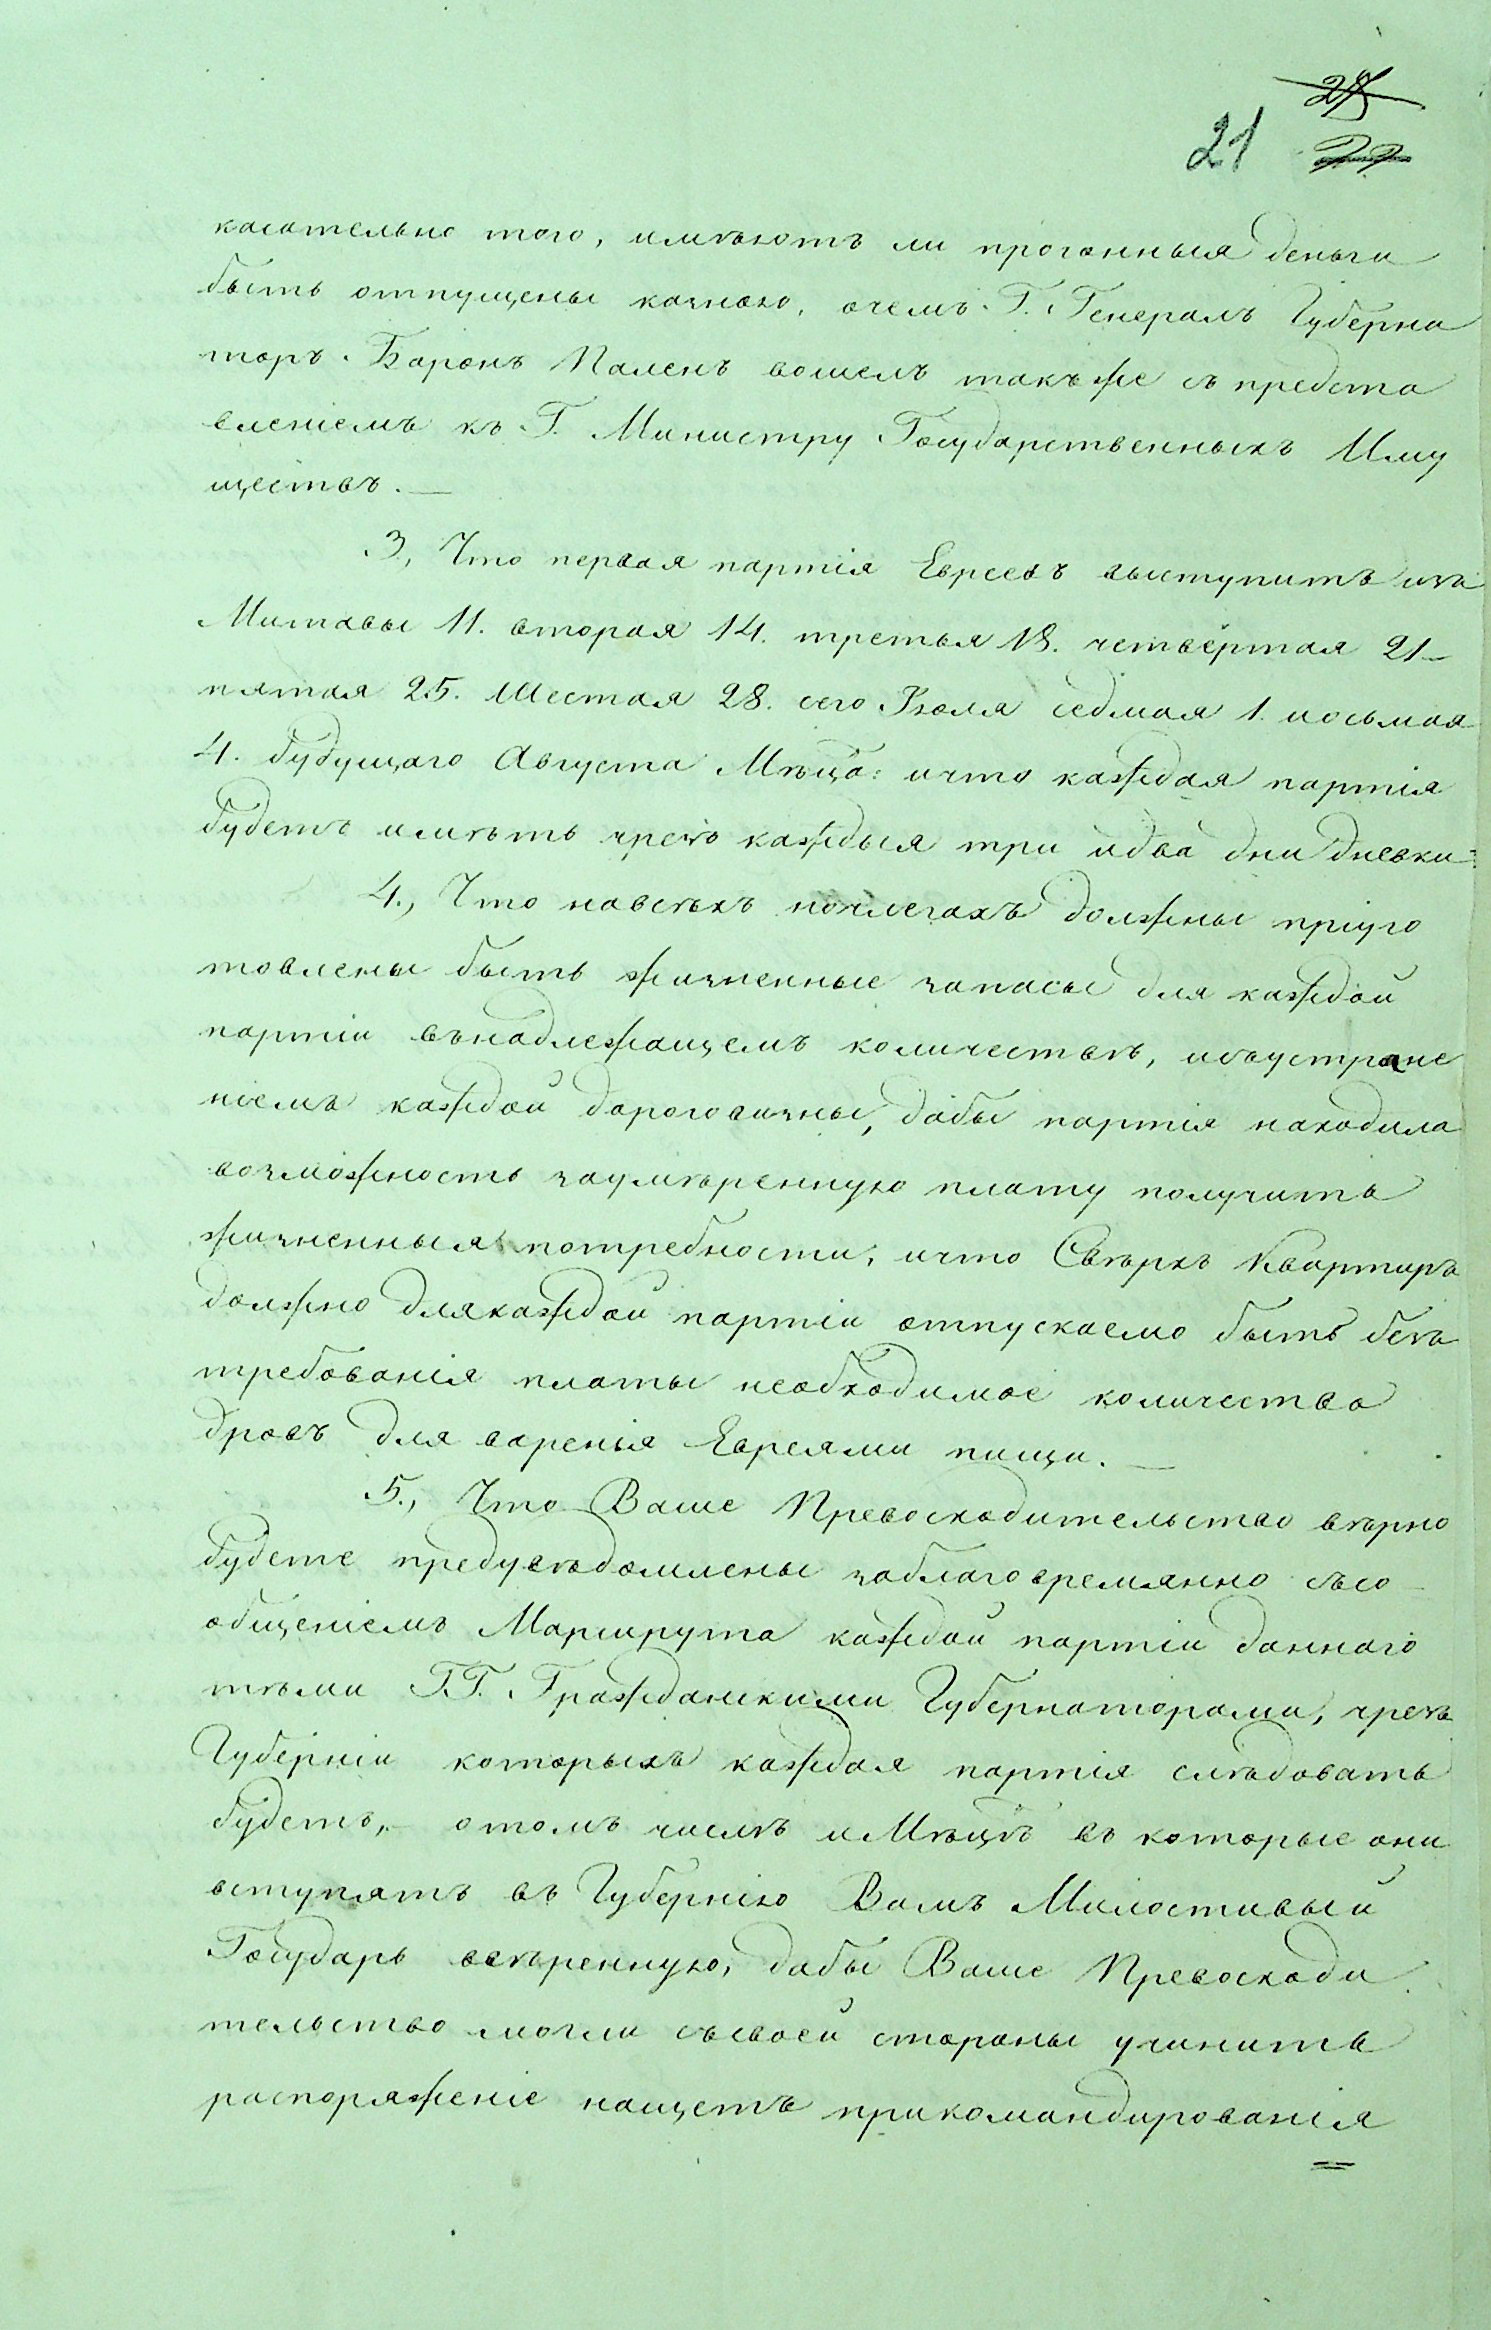 21
касательно того, имѣютъ ли прогонныя деньги
быть отпущены казною, очемъ Г. Генералъ Губерна
торъ Баронъ Паленъ вошелъ такъже съ предста
вленіемъ къ Г. Министру Государственныхъ Иму
ществъ. —
3, Что первая партія Евреевъ выступитъ изъ
Митавы 11. вторая 14. третья 18. четвертая 21 —
пятая 25. Шестая 28. сего Іюля седмая 1. иосьмая
4. будущаго Августа Мѣца: ичто каждая партія
будетъ имѣть чрезъ каждыя три идва дни дневки.
4., Что навсѣхъ ночлегахъ должны пріуго
товлены быть жизненные запасы для каждой
партіи вънадлежащемъ количествѣ, исъустране
ніемъ каждой дороговизны, дабы партія находила
возможность заумѣренную плату получить
жизненныя потребности, ичто Свѣрхъ Квартиръ
должно длякаждой партіи отпускаемо быть безъ
требованія платы необходимое количество
дровъ для варенья Евреями пищи. —
5., Что Ваше Превосходительство вѣрно
будете предувѣдомлены заблаговремянно съсо
общеніемъ Маршрута каждой партіи даннаго
тѣми Г.Г. Гражданскими Губернаторами, чрезъ
Губерніи которыхъ каждая партія слѣдовать
будетъ, — отомъ числѣ иМѣцѣ въ которые они
вступятъ въ Губернію Вамъ Милостивый
Государь ввѣренную, дабы Ваше Превосходи
тельство могли съсвоей стороны учинить
распоряженіе нащетъ прикомандированія